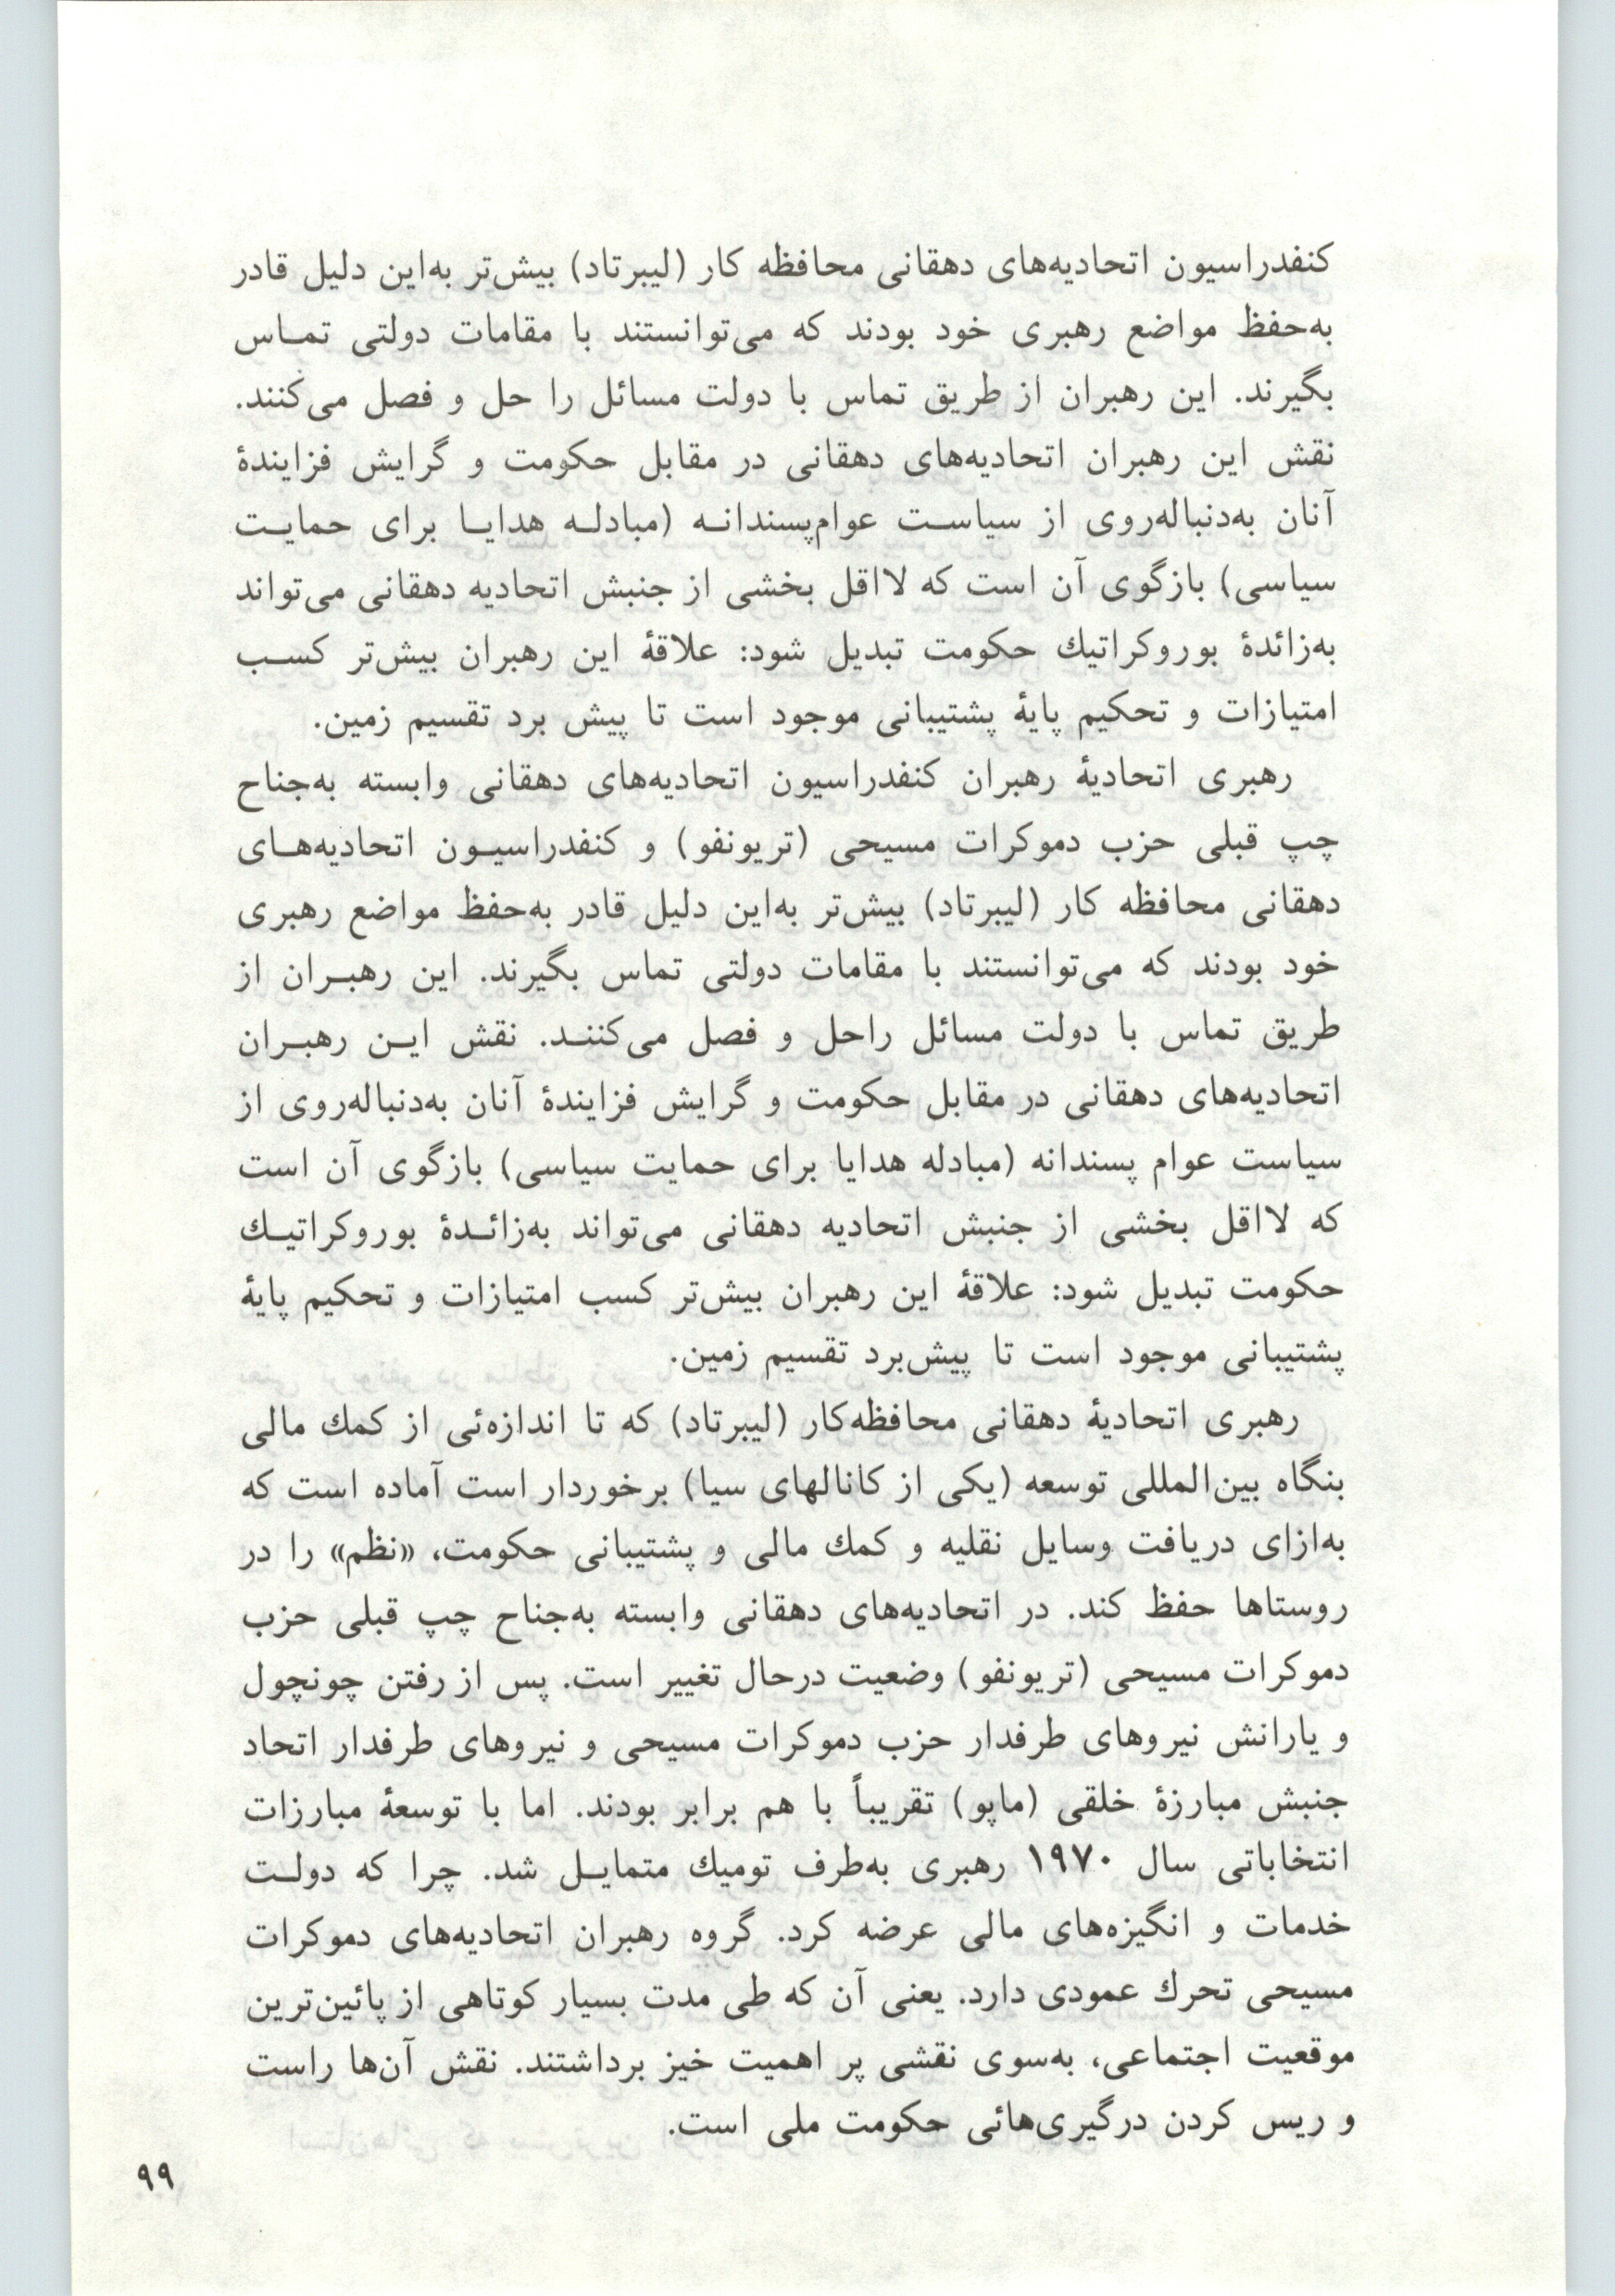 کنفدراسیون اتحادیه‌های دهقانی محافظه کار (لیبرتاد) بیش‌تر به‌این دلیل قادر
به‌حفظ مواضع رهبری خود بودند که می‌توانستند با مقامات دولتی تمـاس
بگیرند. این رهبران از طریق تماس با دولت مسائل را حل و فصل می‌کنند.
نقش این رهبران اتحادیه‌های دهقانی در مقابل حکومت و گرایش فزایندهٔ
آنان به‌دنباله‌روی از سیاسـت عوام‌پسندانـه (مبادلـه هدایـا برای حمایـت
سیاسی) بازگوی آن است که لااقل بخشی از جنبش اتحادیه دهقانی می‌تواند
به‌زائدهٔ بوروکراتیك حکومت تبدیل شود: علاقهٔ این رهبران بیش‌تر کسـب
امتیازات و تحکیم پایهٔ پشتیبانی موجود است تا پیش برد تقسیم زمین.
رهبری اتحادیهٔ رهبران کنفدراسیون اتحادیه‌های دهقانی وابسته به‌جناح
چپ قبلی حزب دموکرات مسیحی (تریونفو) و کنفدراسیـون اتحادیه‌هـای
دهقانی محافظه کار (لیبرتاد) بیش‌تر به‌این دلیل قادر به‌حفظ مواضع رهبری
خود بودند که می‌توانستند با مقامات دولتی تماس بگیرند. این رهبـران از
طریق تماس با دولت مسائل راحل و فصل می‌کننـد. نقش ایـن رهبـران
اتحادیه‌های دهقانی در مقابل حکومت و گرایش فزایندهٔ آنان به‌دنباله‌روی از
سیاست عوام پسندانه (مبادله هدایا برای حمایت سیاسی) بازگوی آن است
که لااقل بخشی از جنبش اتحادیه دهقانی می‌تواند به‌زائـدهٔ بوروکراتیـك
حکومت تبدیل شود: علاقهٔ این رهبران بیش‌تر کسب امتیازات و تحکیم پایهٔ
پشتیبانی موجود است تا پیش‌برد تقسیم زمین.
رهبری اتحادیهٔ دهقانی محافظه‌کار (لیبرتاد) که تا اندازه‌ئی از کمك مالی
بنگاه بین‌المللی توسعه (یکی از کانالهای سیا) برخوردار است آماده است که
به‌ازای دریافت وسایل نقلیه و کمك مالی و پشتیبانی حکومت، «نظم» را در
روستاها حفظ کند. در اتحادیه‌های دهقانی وابسته به‌جناح چپ قبلی حزب
دموکرات مسیحی (تریونفو) وضعیت درحال تغییر است. پس از رفتن چونچول
و یارانش نیروهای طرفدار حزب دموکرات مسیحی و نیروهای طرفدار اتحاد
جنبش مبارزهٔ خلقی (ماپو) تقریباً با هم برابر بودند. اما با توسعهٔ مبارزات
انتخاباتی سال ۱۹۷۰ رهبری به‌طرف تومیك متمایـل شد. چرا که دولـت
خدمات و انگیزه‌های مالی عرضه کرد. گروه رهبران اتحادیه‌های دموکرات
مسیحی تحرك عمودی دارد. یعنی آن که طی مدت بسیار کوتاهی از پائین‌ترین
موقعیت اجتماعی، به‌سوی نقشی پر اهمیت خیز برداشتند. نقش آن‌ها راست
و ریس کردن درگیری‌هائی حکومت ملی است.
۹۹